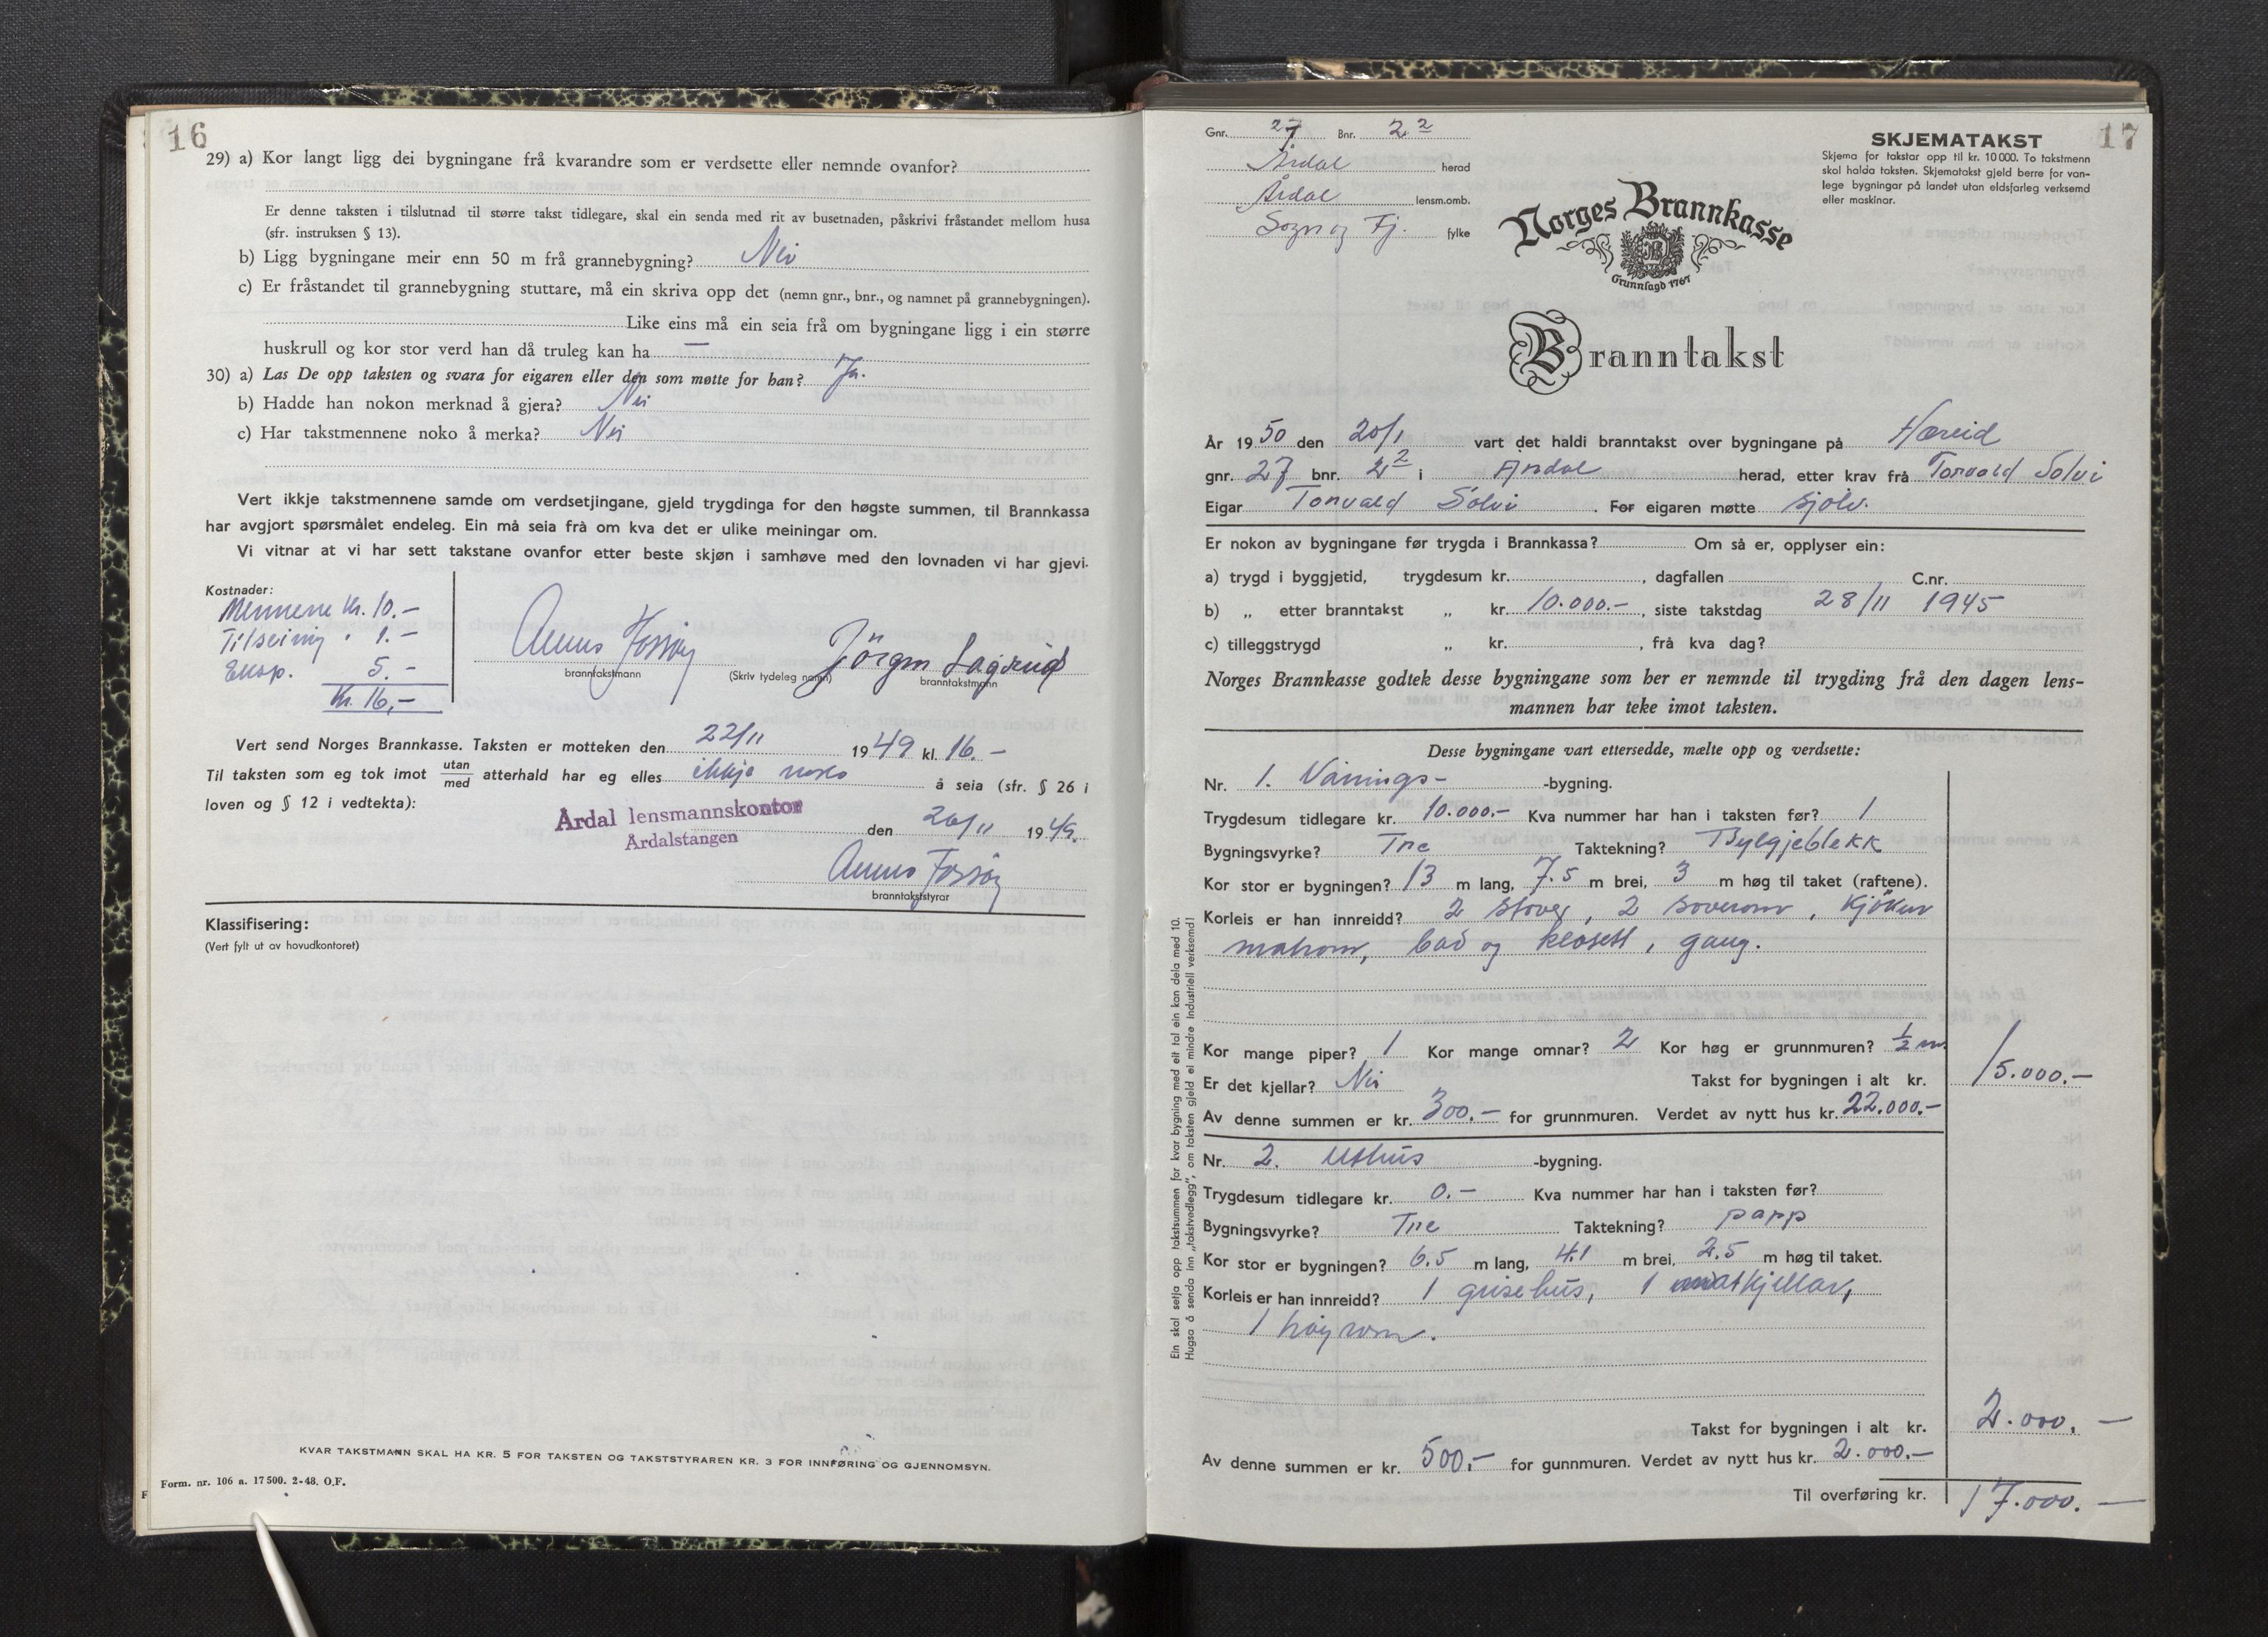 16
29) a) Kor langt ligg dei bygningane frå kvarandre som er verdsette eller nemnde ovanfor?
Er denne taksten i tilslutnad til større takst tidlegare, skal ein senda med rit av busetnaden, påskrivi fråstandet mellom husa
(sfr. instruksen § 13).
b) Ligg bygningane meir enn 50 m frå grannebygning? Nei
c) Er fråstandet til grannebygning stuttare, må ein skriva opp det (nemn gnr., bnr., og namnet på grannebygningen).
Like eins må ein seia frå om bygningane ligg i ein større
huskrull og kor stor verd han då truleg kan ha —
30) a) Las De opp taksten og svara for eigaren eller den som møtte for han? Ja.
b) Hadde han nokon merknad å gjera? Nei
c) Har takstmennene noko å merka? Nei
Vert ikkje takstmennene samde om verdsetjingane, gjeld trygdinga for den høgste summen, til Brannkassa
har avgjort spørsmålet endeleg. Ein må seia frå om kva det er ulike meiningar om.
Vi vitnar at vi har sett takstane ovanfor etter beste skjøn i samhøve med den lovnaden vi har gjevi.
Kostnader:
Mennene kr. 10.—
Tilseiing " 1.—
Eksp. 5.—
Kr. 16,—
branntakstmann
(Skriv tydeleg namn)
Jörgen
branntakstmann
Vert send Norges Brannkasse. Taksten er motteken den 22/11 1949 kl. 16.—
Til taksten som eg tok imot utan/med atterhald har eg elles ikkje noko å seia (sfr. § 26 i
loven og § 12 i vedtekta):
Årdal lensmannskontor
Årdalstangen
den 26/11 1949.
branntakststyrar
Klassifisering:
(Vert fylt ut av hovudkontoret)
KVAR TAKSTMANN SKAL HA KR. 5 FOR TAKSTEN OG TAKSTSTYRAREN KR. 3 FOR INNFØRING OG GJENNOMSYN.
Form. nr. 106 a. 17 500. 2-48. O.F.
17
Gnr. 27 Bnr. 2 2
Årdal herad
Årdal lensm.omb.
Sogn og Fj. fylke
SKJEMATAKST
Skjema for takstar opp til kr. 10 000. To takstmenn
skal halda taksten. Skjematakst gjeld berre for van-
lege bygningar på landet utan eldsfarleg verksemd
eller maskinar.
Norges Brannkasse
Grunnlagd 1767
Branntakst
År 1950 den 20/1 vart det haldi branntakst over bygningane på Hæreid
gnr. 27 bnr. 2 2 i Årdal herad, etter krav frå Torvald Solvi
Eigar Torvald Solvi. For eigaren møtte sjölv.
Er nokon av bygningane før trygda i Brannkassa? Om så er, opplyser ein:
a) trygd i byggjetid, trygdesum kr. , dagfallen C.nr.
b) „ etter branntakst „ kr. 10.000.— , siste takstdag 28/11 1945
c) tilleggstrygd „ kr. , frå kva dag?
Norges Brannkasse godtek desse bygningane som her er nemnde til trygding frå den dagen lens-
mannen har teke imot taksten.
Desse bygningane vart ettersedde, mælte opp og verdsette:
Nr. 1. Vånings- -bygning.
Trygdesum tidlegare kr. 10.000.— Kva nummer har han i taksten før? 1
Bygningsvyrke? Tre Taktekning? Bylgjeblekk
Kor stor er bygningen? 13 m lang, 7.5 m brei, 3 m høg til taket (raftene).
Korleis er han innreidd? 2 stover, 2 soverom, kjöken
matrom, bad og klosett, gang.
Kor mange piper? 1 Kor mange omnar? 2 Kor høg er grunnmuren? 1/2 m.
Er det kjellar? Nei Takst for bygningen i alt kr. 15.000.—
Av denne summen er kr. 300.— for grunnmuren. Verdet av nytt hus kr. 22.000.—
Nr. 2. Uthus -bygning.
Trygdesum tidlegare kr. 0.— Kva nummer har han i taksten før?
Bygningsvyrke? Tre Taktekning? papp
Kor stor er bygningen? 6.5 m lang, 4.1 m brei, 2.5 m høg til taket.
Korleis er han innreidd? 1 grisehus, 1 matkjellar,
1 höyrom.
Takst for bygningen i alt kr. 2.000,—
Av denne summen er kr. 500.— for gunnmuren. Verdet av nytt hus kr. 2.000.—
Til overføring kr. 17.000.—
Ein skal setja opp takstsummen for kvar bygning med eit tal ein kan dela med 10.
Hugsa å senda inn „takstvedlegg", om taksten gjeld ei mindre industriell verksemd!